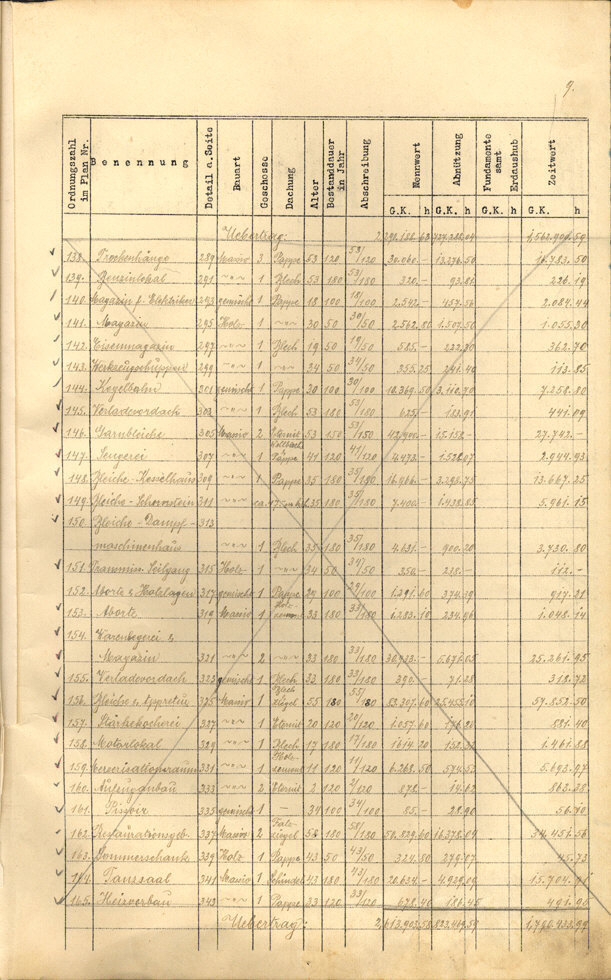 9.
Ordnungszahl im Plan Nr. Benennung Detail a. Seite Bauart Geschosse Dachung Alter Bestanddauer in Jahr Abschreibung Nennwert Abnützung Fundamente samt Erdaushub Zeitwert
G.K. h G.K. h G.K. h G.K. h
Uebertrag: 1,562.901.59
138. 289 massiv 3 Pappe 53 120 53/120 30.060.- 13.276.50 16.783.50
139. Benzinlokal 291 -"- 1 Blech 53 180 53/180 320.- 93.81 226.19
140. Magazin f. Elektriker 293 gemischt 1 Pappe 18 100 18/100 2.542.- 457.56 2.084.44
141. Magazin 295 Holz 1 -"- 30 50 30/50 2.562.80 1.507.50 1.055.30
142. Eisenmagazin 297 -"- 1 Blech 19 50 19/50 585.- 222.30 362.70
143. 299 -"- 1 -"- 34 50 34/50 355.25 241.40 113.85
144. Kegelbahn 301 gemischt 1 Pappe 30 100 30/100 10.369.50 3.110.70 7.258.80
145. Verladevordach 303 1 Blech 53 180 53/180 625.- 183.91 441.09
146. Garnbleiche 305 massiv 2 Eternit 53 150 53/150 15.158.- 27.742.-
147. Sengerei 307 -"- 1 Pappe 41 120 41/120 4.473.- 1.528.07 2.944.93
148. Bleiche-Kesselhaus 309 -"- 1 Pappe 35 180 35/180 3.298.75 13.667.25
149. Bleiche-Schornstein 311 -"- 35 180 35/180 7.400.- 1.438.85 5.961.15
150. Bleiche-Dampf- 313
maschinenhaus -"- 1 Blech 35 180 35/180 4.631.- 900.20 3.730.80
151. Seilgang 315 Holz 1 -"- 34 50 34/50 350.- 238.- 112.-
152. Aborte & Holzlagen 317 gemischt 1 Pappe 29 100 29/100 1.291.60 374.39 917.21
153. Aborte 319 massiv 1 33 180 33/180 1.283.10 234.96 1.048.14
154. Warenlegerei &
Magazin 321 -"- 2 -"- 33 180 33/180 5.671.05 25.261.95
155. Verladevordach 323 gemischt 1 Blech 33 180 33/180 390.- 71.28 318.72
156. Bleiche u. Appretur 325 massiv 55 180 55/180 83.307.60 25.455.10 57.852.50
157. Stärkekocherei 327 -"- 1 Eternit 20 120 20/120 1.057.60 176.20 881.40
158. Motorlokal 329 -"- 1 Blech 17 180 17/180 1614.20 152.32 1.461.88
159. Mercerisationsraum 331 -"- 1 11 120 11/120 6.268.50 574.53 5.693.97
160. Aufzuganbau 333 -"- 2 Eternit 2 120 2/120 14.62 862.28
161. Pissoir 335 gemischt 1 - 34 100 34/100 85.- 28.90 56.10
162. Restaurationsgeb. 337 massiv 2 Falzziegel 58 180 58/180 50.829.60 16.378.04 34.451.56
163. Sommerschank 339 Holz 1 Pappe 43 50 43/50 324.80 279.07 45.73
164. Tanzsaal 341 massiv 1 Schindel 43 180 43/180 20.634.- 4.929.09 15.704.91
165. Heizvorbau 343 -"- 1 Pappe 33 120 33/120 678.40 186.45 491.95
Uebertrag: 2,613.903.58 823.469.59 1,790.433.99